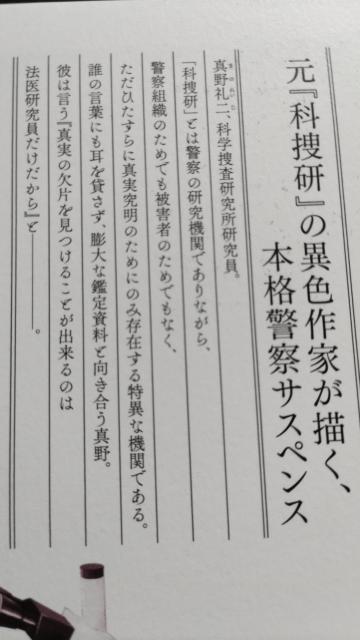 元『科捜研』の異色作家が描く、
本格警察サスペンス
真野礼二、科学捜査研究所研究員。
「科捜研」とは警察の研究機関でありながら、
警察組織のためでも被害者のためでもなく、
ただひたすらに真実究明のためにのみ存在する特異な機関である。
誰の言葉にも耳を貸さず、膨大な鑑定資料と向き合う真野。
彼は言う『真実の欠片を見つけることが出来るのは
法医研究員だけだから』と――。